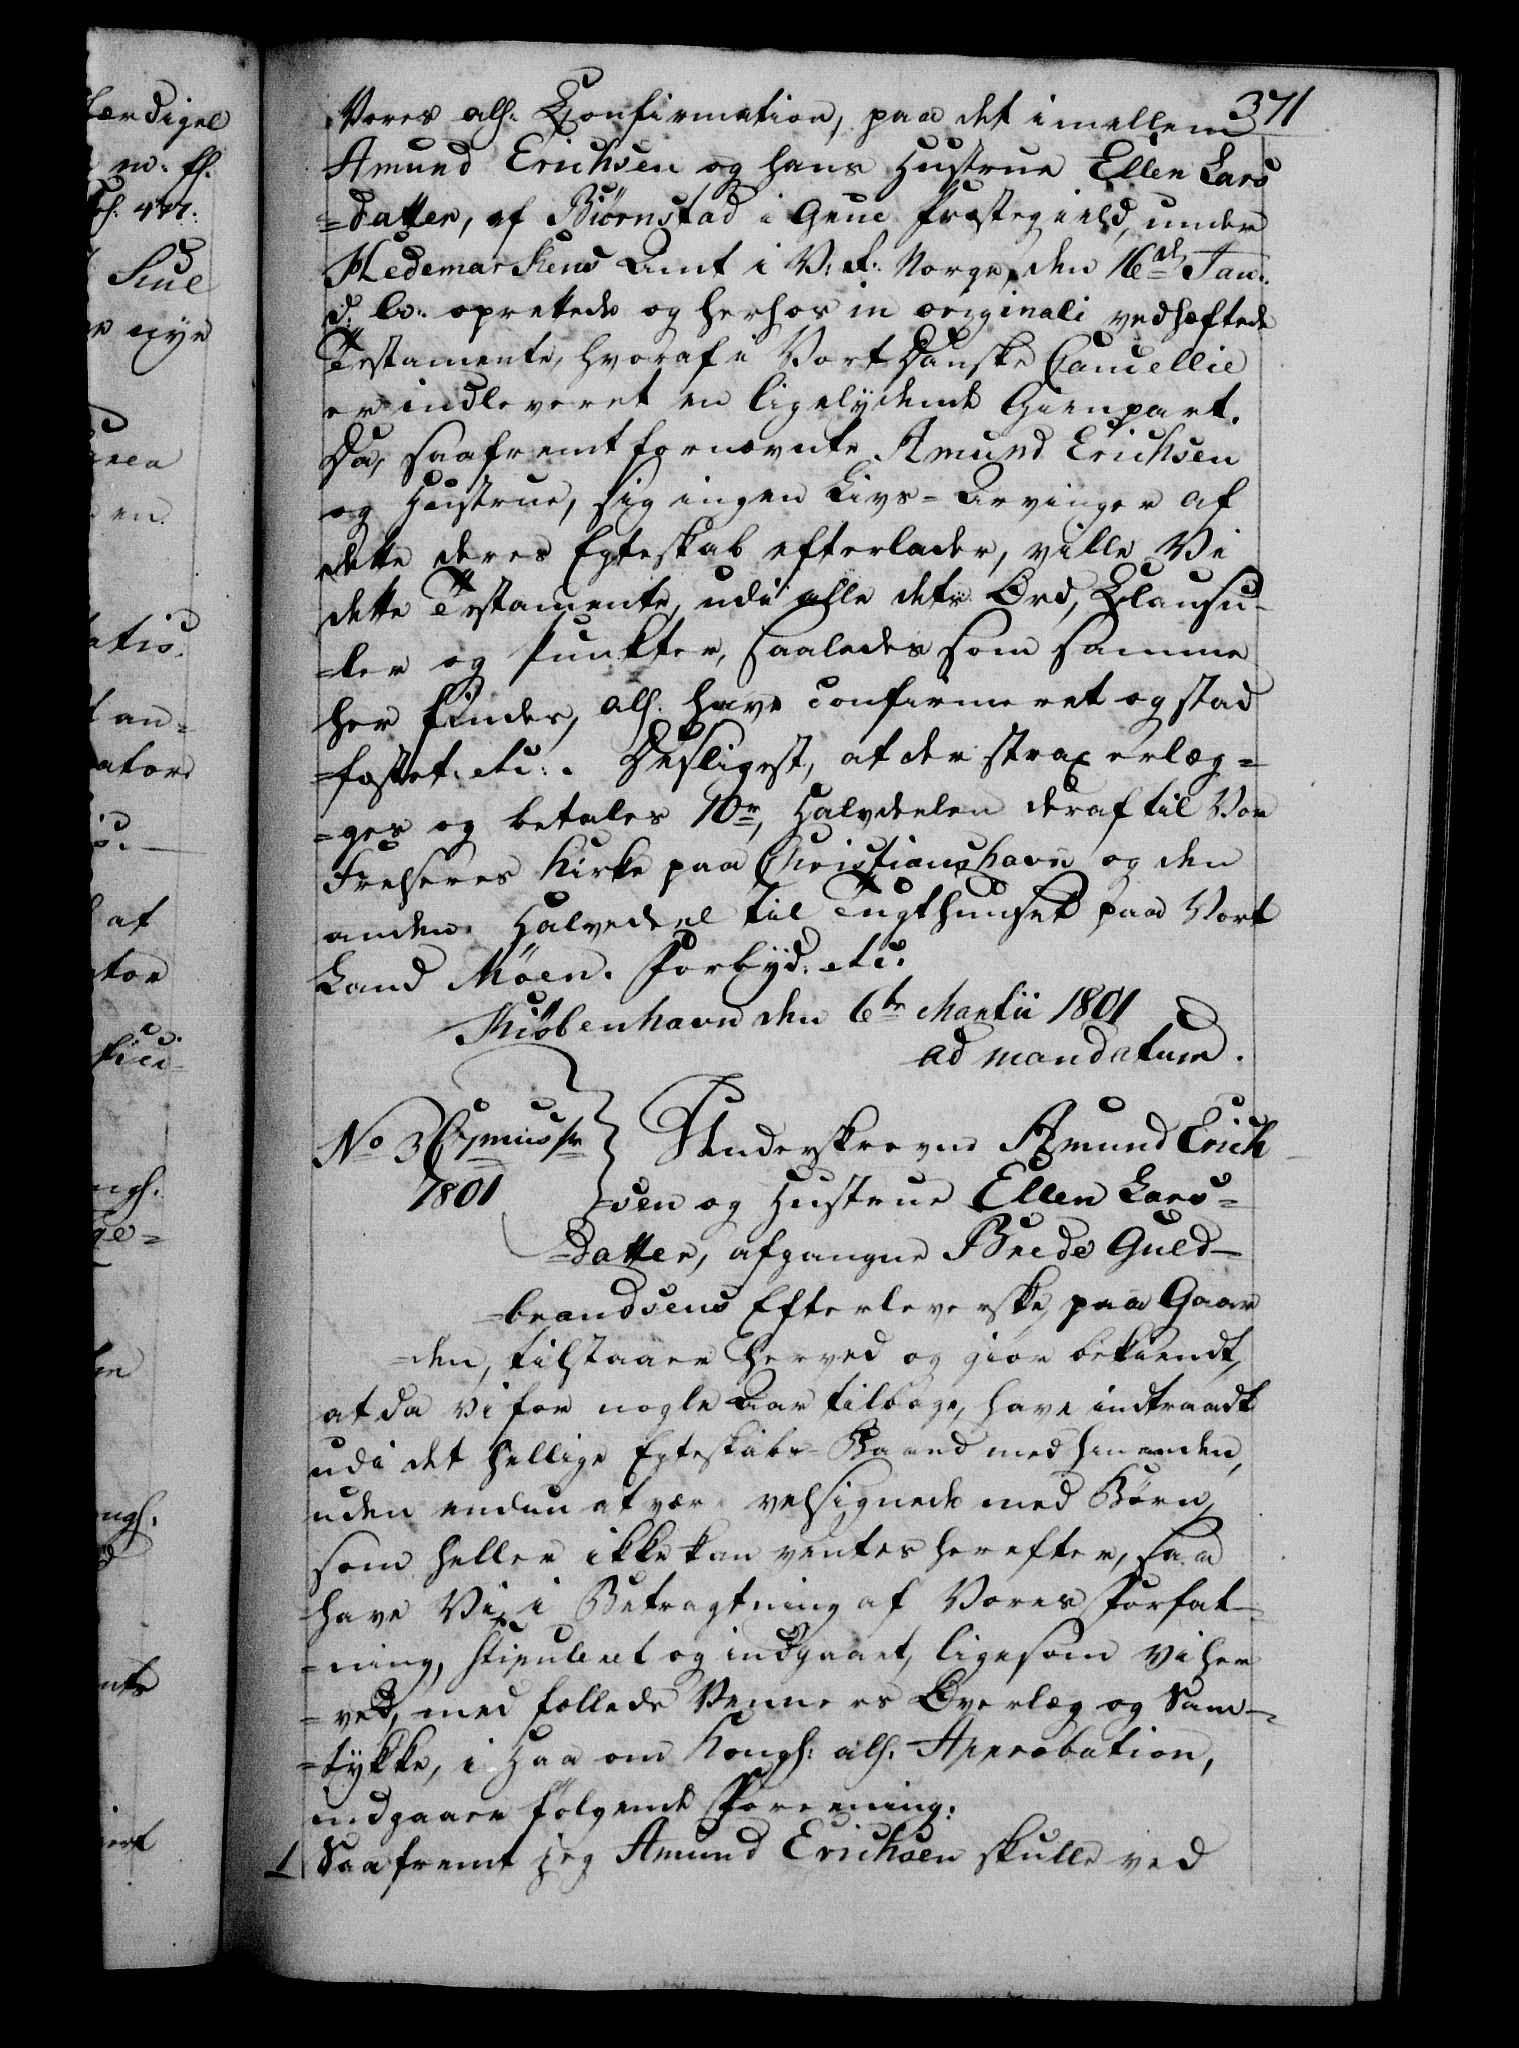 371
Vores alh. Confirmation, paa det imellem
Amund Erichsen og hans Hustrue Ellen Lars
=datter, af Biørnstad i Grue Præstegield, under
Hedemarkens Amt i V: R: Norge, den 16de Jan:
d. A: oprettede og herhos in originali vedhæftede
Testamente, hvoraf i Vort Danske Cancellie
er indleveret en ligelydende Gienpart.
Da, saafremt fornævnte Amund Erichsen
og Hustrue, sig ingen Livs-Arvinger af
dette deres Egteskab efterlader, ville Vi
dette Testamente, udi alle dets Ord, Clausu-
=ler og Punkter, saaledes som samme
her findes, alh. have confirmeret og stad
=fæstet. etc: . Desligest, at der strax erlæg=
=ges og betales 10r, Halvdeelen deraf til Vor
Frelseres Kirke paa Christianshavn og den
anden Halvedeel til Tugthuuset paa Vort
Land Møen. Forbyd. etc.
Kiøbenhavn den 6te Martii 1801
ad mandatum.
No 36
1801
Underskrevne Amund Erich
=sen og Hustrue Ellen Lars=
=datter, afgangne Brede Guld-
=brandsens Efterleverske, paa Gaar
=den, tilstaaer herved og giør bekiendt,
at da vi for nogle Aar tilbage, have indtraadt
udi det hellige Egteskabs-Baand med hinanden,
uden endnu at være velsignede med Børn,
som heller ikke kan ventes herefter, saa
have Vi, i Betragtning af Vores Forfat-
=ning, stipuleret og indgaaet, ligesom vi her
=ved, med fælleds Venners Overlæg og Sam-
=tykke, i Haab om Kongl: alh. Approbation,
indgaaer følgende Foreening:
1 Saafremt jeg Amund Erichsen skulle ved